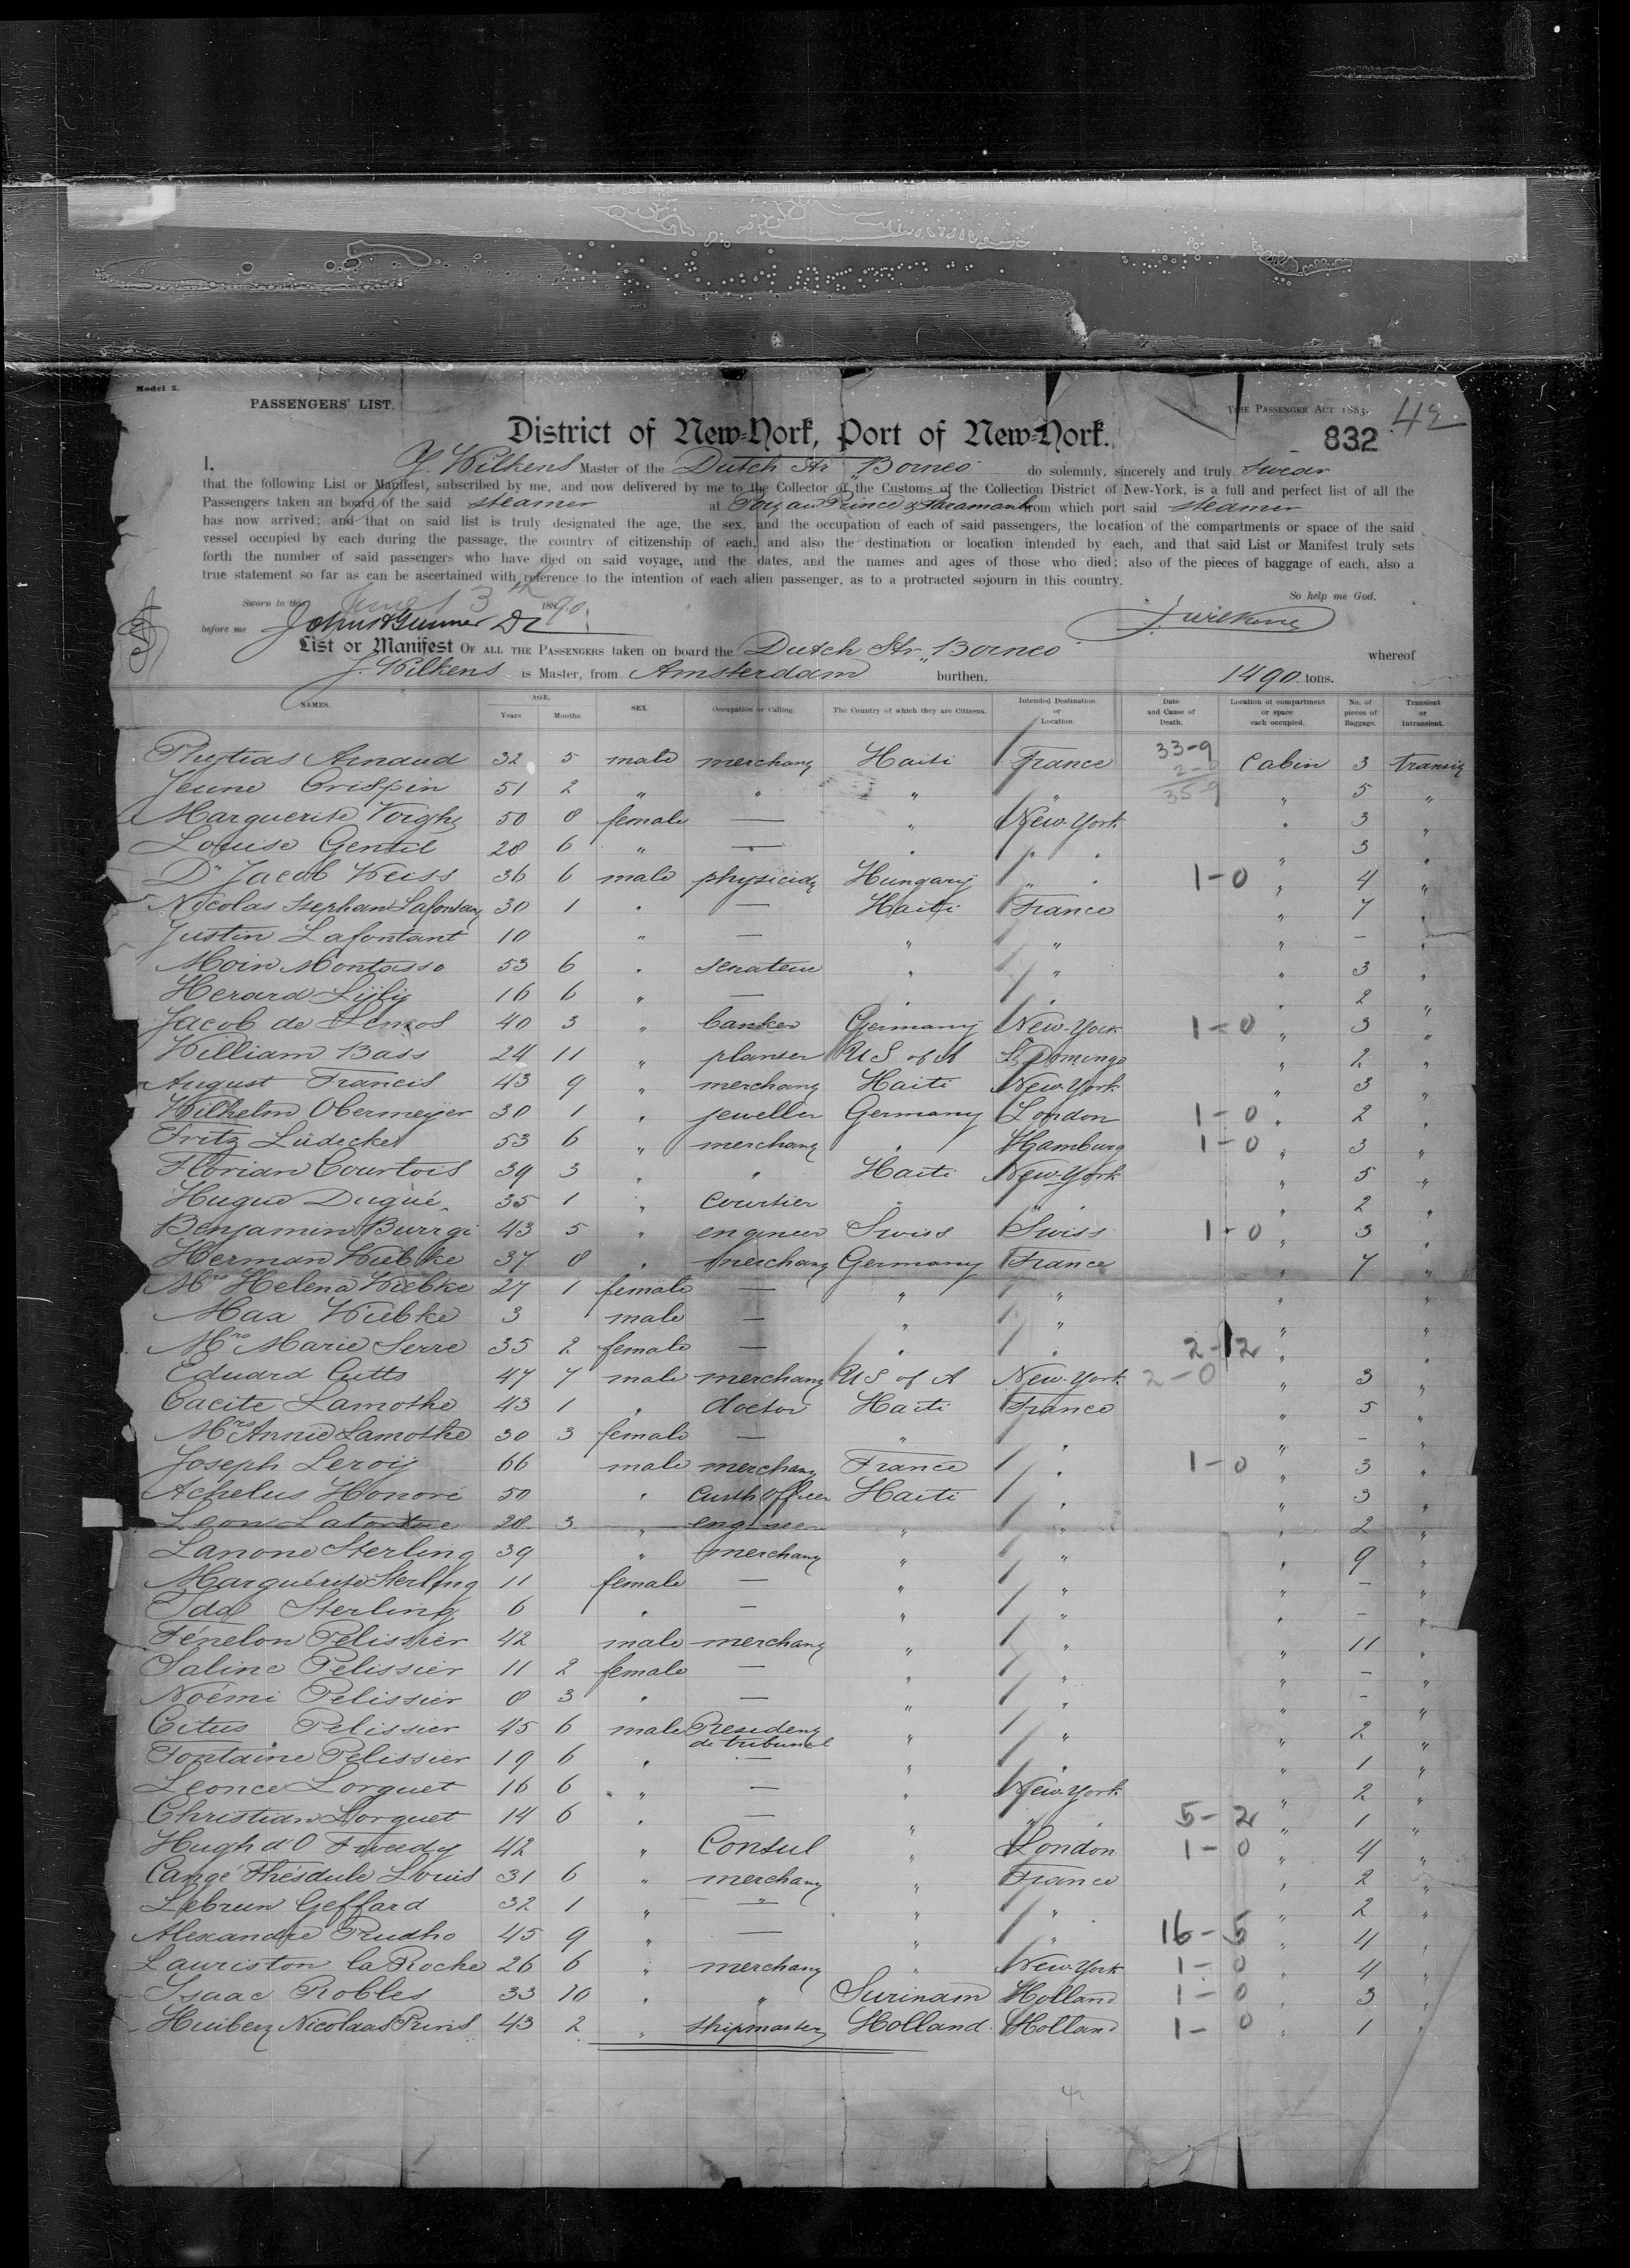 Model 3.
PASSENGERS' LIST.
THE PASSENGER ACT 1883.
42
District of New=York, Port of New=York.
832
I, J. Wilkens Master of the Dutch Str "Borneo do solemnly, sincerely and truly swear
that the following List or Manifest, subscribed by me, and now delivered by me to the Collector of the Customs of the Collection District of New-York, is a full and perfect list of all the
Passengers taken an board of the said steamer at Port au Prince & Paramaribo from which port said steamer
has now arrived; and that on said list is truly designated the age, the sex, and the occupation of each of said passengers, the location of the compartments or space of the said
vessel occupied by each during the passage, the country of citizenship of each, and also the destination or location intended by each, and that said List or Manifest truly sets
forth the number of said passengers who have died on said voyage, and the dates, and the names and ages of those who died; also of the pieces of baggage of each, also a
true statement so far as can be ascertained with reference to the intention of each alien passenger, as to a protracted sojourn in this country.
So help me God.
Sworn to this June 13th 1890
before me John A Gunner
J. Wilkens
List or Manifest OF ALL THE PASSENGERS taken on board the Dutch Str. "Borneo whereof
J. Wilkens is Master, from Amsterdam burthen. 1490 tons.
NAMES. AGE. Years Months. SEX. Occupation or Calling. The Country of which they are Citizens. Intended Destination or Location. Date and Cause of Death. Location of compartment or space each occupied. No. of pieces of Baggage. Transient or Intransient.
Phytias Arnaud 32 5 male merchant Haiti France 33-9 Cabin 3 transit
2-0
Jeune Crispin 51 2 " " " " 35-9 " 5 "
Marguerite 50 8 female — " New-York " 3 "
Louise Gentil 28 6 " — " " " " 3 "
Dr Jacob Weiss 36 6 male physician Hungary " " 1-0 " 4 "
Nicolas Stephan Lafontant 30 1 " — Haiti France " 7 "
Justin Lafontant 10 " — " " " — "
Moin Montasso 53 6 " senateur " " " 3 "
Herard Lijlij 16 6 " — " " " 2 "
Jacob de Lemos 40 3 " banker Germany New-York 1-0 " 3 "
William Bass 24 11 " planter US of A St Domingo " 2 "
August Francis 43 9 " merchant Haiti New-York " 3 "
Wilhelm Obermeijer 30 1 " jeweller Germany London 1-0 " 2 "
Fritz Lüdecke 53 6 " merchant " Hamburg 1-0 " 3 "
Florian Courtois 39 3 " " Haiti New-York " 5 "
Hugue Dugué 35 1 " courtier " " " 2 "
Benjamin Burrgi 43 5 " engineer Swiss Swiss 1-0 " 3 "
Herman Wiebke 37 8 " merchant Germany France " 7 "
Mrs Helena Wiebke 27 1 female — " " " "
Max Wiebke 3 male — " " " "
Mrs Marie Serre 35 2 female — " " 2-12 " "
Eduard Cutts 47 7 male merchant US of A New-York 2-0 " 3 "
Cacite Lamothe 43 1 " doctor Haiti France " 5 "
Mrs Annie Lamothe 30 3 female — " " " — "
Joseph Leroij 66 male merchant France " 1-0 " 3 "
Achelus Honoré 50 " Custh Officer Haiti " " 3 "
Leon Latortue 28 3 " engineer " " " 2 "
Lanone Sterling 39 " merchant " " " 9 "
Marguérite Sterling 11 female — " " " — "
Ida Sterling 6 " — " " " — "
Fénelon Pelissier 42 male merchant " " " 11 "
Saline Pelissier 11 2 female — " " " — "
Noémi Pelissier 8 3 " — " " " — "
Citus Pelissier 45 6 male President " " " 2 "
de tribunal
Fontaine Pelissier 19 6 " — " " " 1 "
Leonce Lorquet 16 6 " — " New-York " 2 "
Christian Lorquet 14 6 " — " " 5-2 " 1 "
Hugh d'O Tweedy 42 " Consul " London 1-0 " 4 "
Cangé Thésdule Louis 31 6 " merchant " France " 2 "
Lebrun Geffard 32 1 " " " " " 2 "
Alexandre Prudho 45 9 " — " " 16-5 " 4 "
Lauriston la Roche 26 6 " merchant " New-York 1-0 " 4 "
Isaac Robles 33 10 " " Surinam Holland 1-0 " 3 "
Huibert Nicolaas Prins 43 2 " shipmaster Holland Holland 1-0 " 1 "